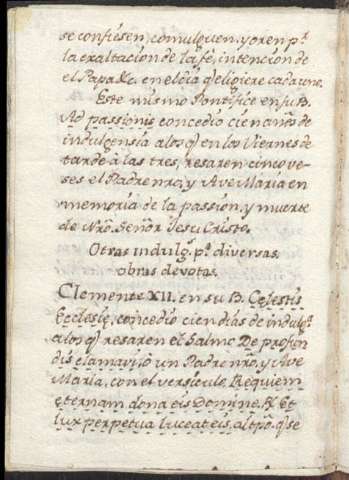 se confiésen, comulguen, y oren p.ª
la exaltacion de la fé, intencion de
el Papa &c. en el dia q̃ eligiere cada uno.
Este mismo Pontifice en su B.
Ad passionis concedio cien años de
indulgensia alos q̃ en los Viernes de
tarde à las tres, resaren cinco ve-
ses el Padre nrõ, y Ave Maria en
memoria de la passion, y muerte
de Nrõ. Señor Jesu Cristo.
Otras indulg.s p.ª diversas
obras devotas.
Clemente XII. en su B. Cęlestis
Ecclesię, concedio cien dias de indulg.ª
alos q̃ resaren el Salmo De profun
dis clamavi, ò un Padre nrõ, y Ave
Maria, con el versiculo, Requiem
ęternam dona eis Domine. R. Et
lux perpetua luceat eis, al tpõ. q̃ se